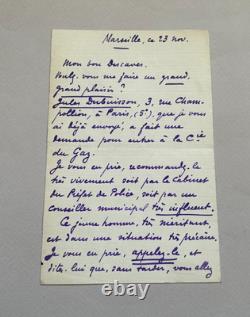 Marseille, ce 23 nov.
Mon bon Descaves.
Voulez-vous me faire un grand,
grand plaisir ?
Jules Dubuisson, 3, rue Cham-
pollion, à Paris, (5e), que je vous
ai déjà envoyé, a fait une
demande pour entrer à la Cie
du Gaz.
Je vous en prie, recommandez-le
très vivement soit par le Cabinet
du Préfet de Police, soit par un
conseiller municipal très influent.
Ce jeune homme, très méritant,
est dans une situation très précaire.
Je vous en prie, appelez-le, et
dites-lui que, sans tarder, vous allez
ebay